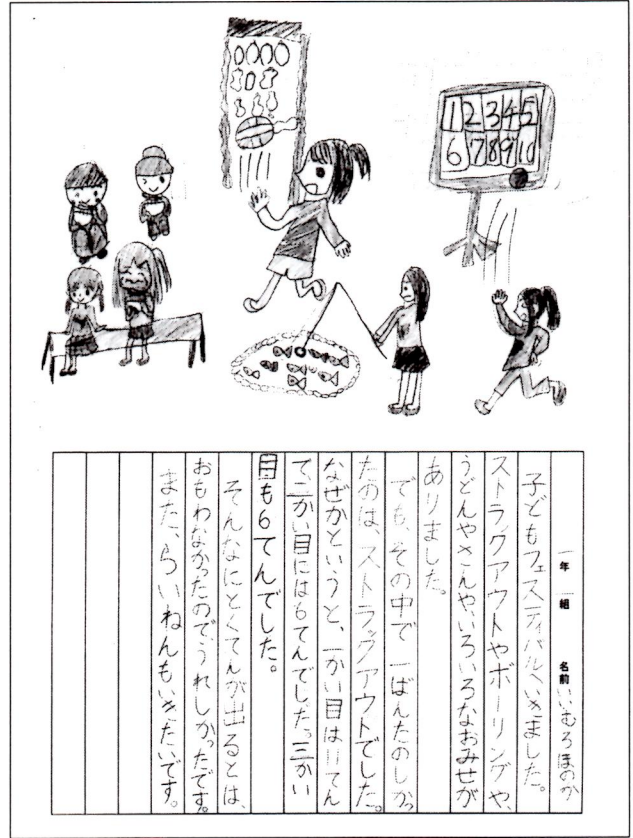 1 2 3 4 5
6 7 8 9 10
一年 一組 名前 いいむろほのか
子どもフェスティバルへいきました。
ストラックアウトやボーリングや、
うどんやさんや、いろいろなおみせが
ありました。
でも、その中で一ばんたのしかっ
たのは、ストラックアウトでした。
なぜかというと、一かい目は11てん
で、二かい目には6てんでした。三かい
目も6てんでした。
そんなにとくてんが出るとは、
おもわなかったので、うれしかったです。
また、らいねんもいきたいです。